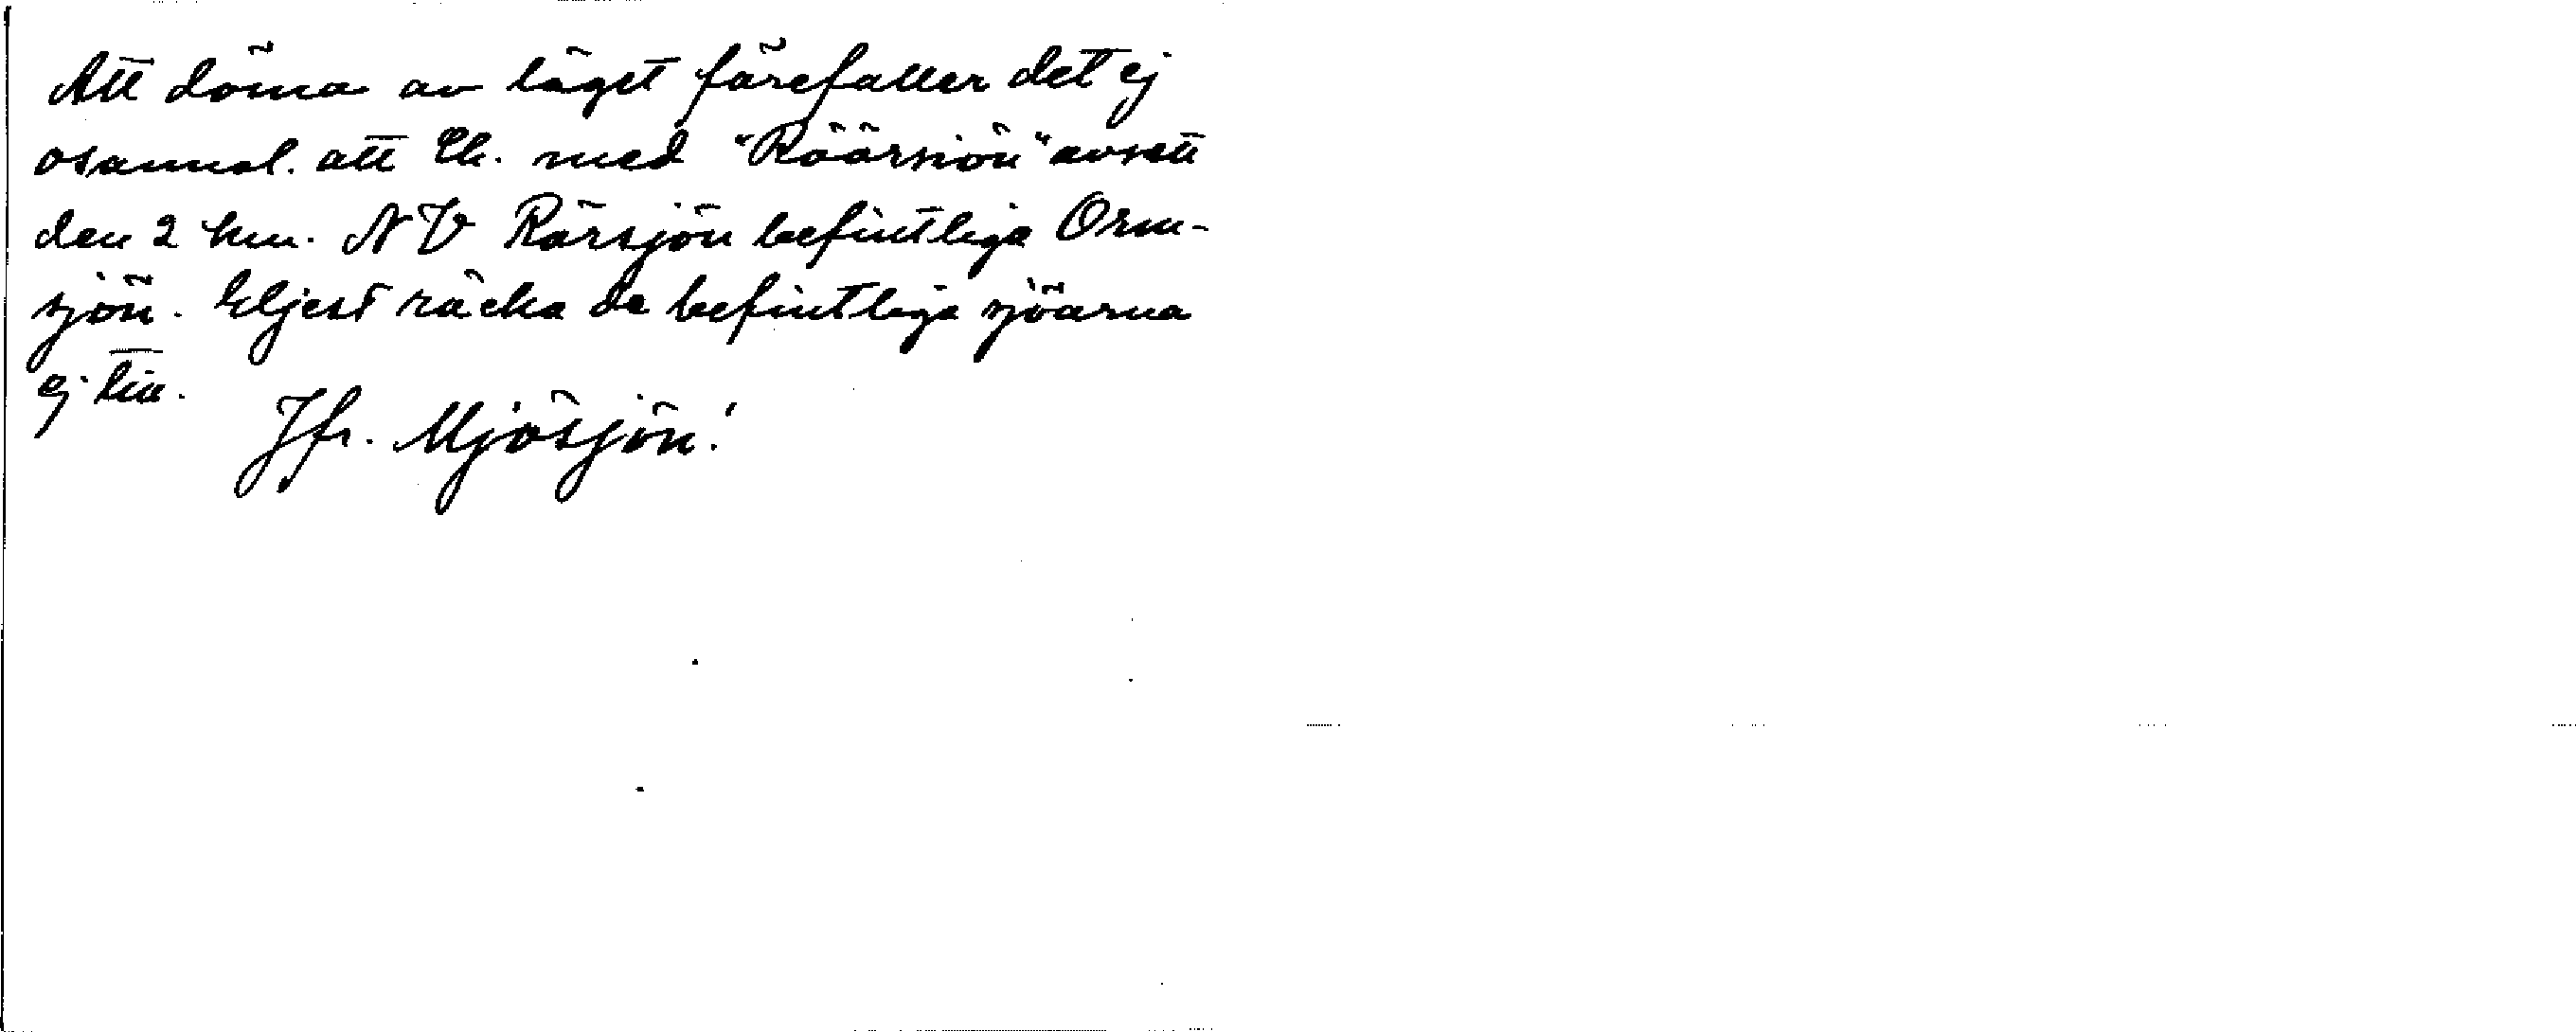 Att döma av läget förefaller det ej
osannol. att Ek. med "Röörsiön" avsett
den 2 km. NV Rörsjön befintliga Orm-
sjön. Eljest räcka de befintliga sjöarna
ej till.
Jfr. Mjösjön!